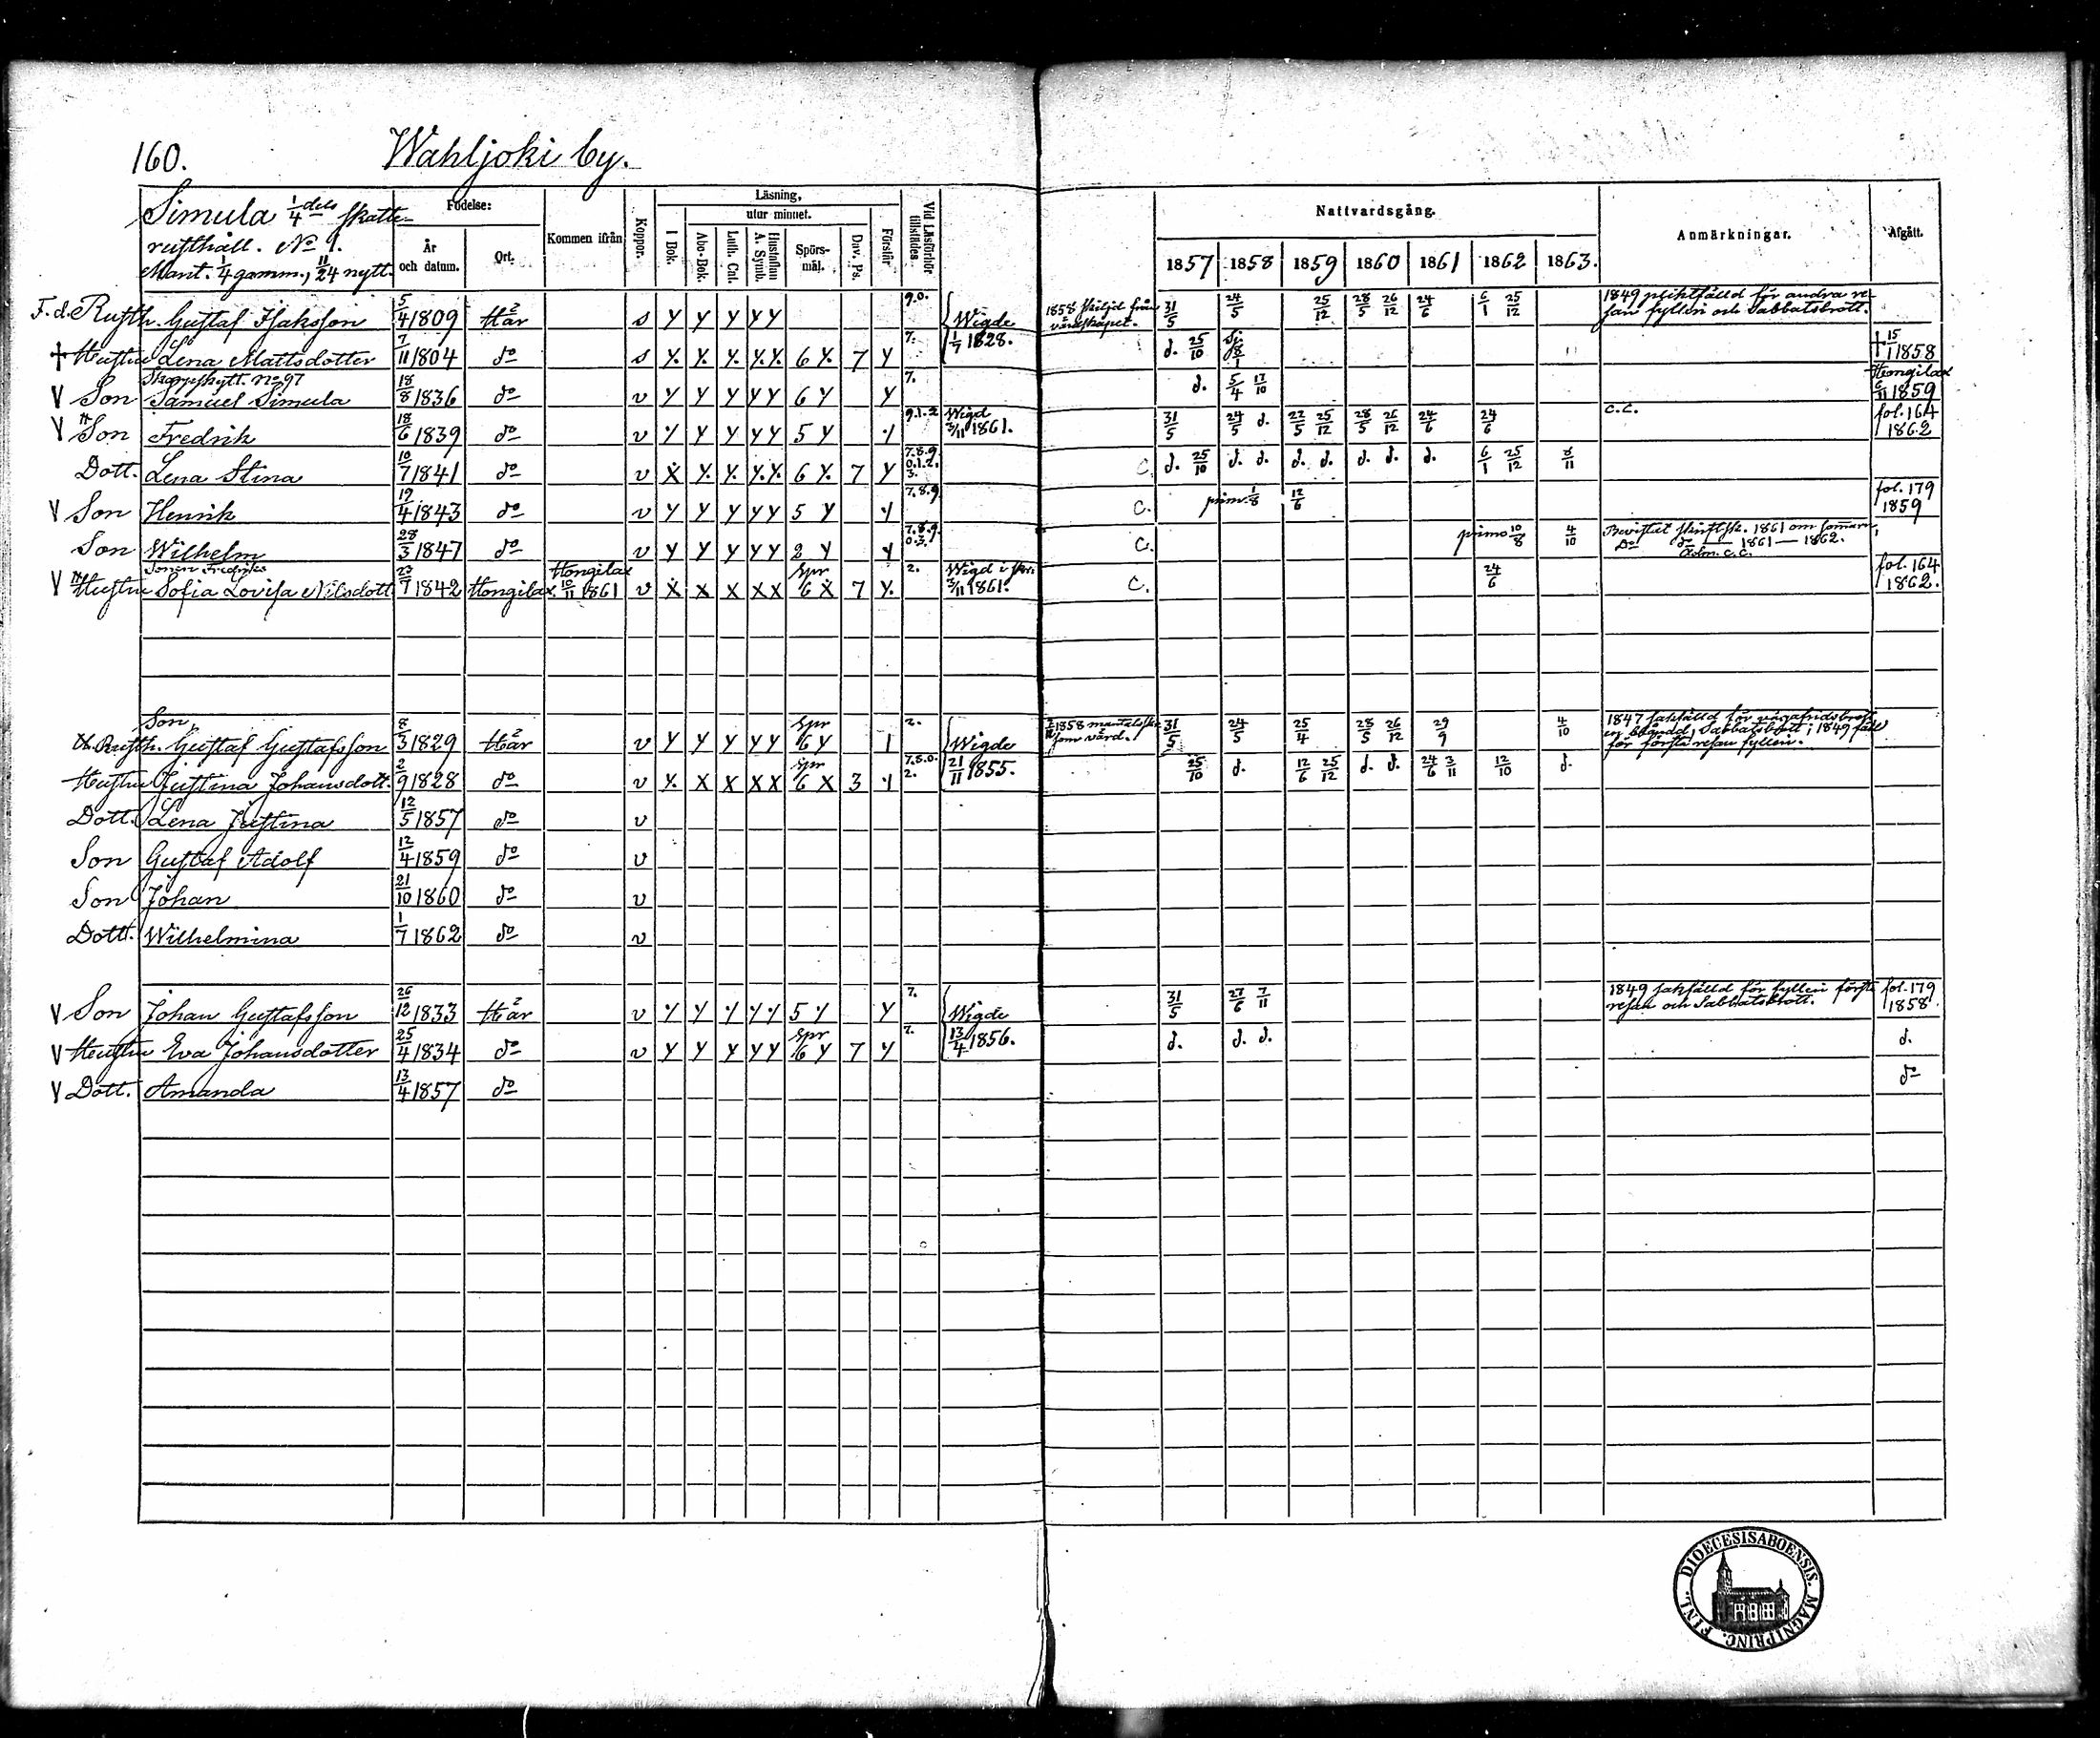 160. Wahljoki by.
Simula 1/4 dels skatte-
rusthåll. No 9.
Mant. 1/4 gamm., 11/24 nytt.
Födelse:
År och datum.
Ort.
Kommen ifrån
Koppor.
Läsning,
utur minnet.
I Bok.
Abc-Bok.
Luth. Cat.
Hustaflan A. Symb.
Spörs-mål.
Dav. Ps.
Förstår
Vid Läsförhör tillstädes
Nattvardsgång.
1857 1858 1859 1860 1861 1862 1863.
Anmärkningar.
Afgått.
F. d. Rusth. Gustaf Isaksson 5/4 1809 Här s y y y y y 9.0. Wigde 1858 skiljd från värdskapet. 31/5 24/5 25/12 28/5 26/12 24/6 6/1 25/12 1849 pliktfälld för andra re-
san fylleri och Sabbatsbrott.
† Hustru Lena Mattsdotter 7/11 1804 do s y. y. y. y. y. 6 y. 7 y 7. 1/7 1828. d. 25/10 8/1 † 15/1 1858
Skarpskytt. No 97
V Son Samuel Simula 18/8 1836 do v y y y y y 6 y y 7. d. 5/4 17/10 Hongilax 6/11 1859
V Son Fredrik 18/6 1839 do v y y y y y 5 y y 9.1.2 Wigd 3/11 1861. 31/5 24/5 d. 22/5 25/12 28/5 26/12 24/6 24/6 c.c. fol. 164 1862
Dott. Lena Stina 10/7 1841 do v x y. y. y. y. 6 y. 7 y 7.8.9. 0.1.2. 3. C. d. 25/10 d. d. d. d. d. d. d. 6/1 25/12 8/11
V Son Henrik 19/4 1843 do v y y y y y 5 y y 7.8.9 C. prim. 1/8 12/6 fol. 179 1859
Son Wilhelm 28/3 1847 do v y y y y y 2 y y 7.8.9. 0.3. C. primo 10/8 4/10 Bevistat skriftsk. 1861 om somaren,
Do do 1861 — 1862.
c.c.
Sonen Fredriks
V Hustru Sofia Lovisa Nilsdott. 23/7 1842 Hongilax Hongilax 10/11 1861 v x x x x x Spr 6 x 7 y. 2. Wigd 3/11 1861. C. 24/6 fol. 164 1862.
Son,
Rusth. Gustaf Gustafsson 8/3 1829 Här v y y y y y Spr 6 y 1 2. Wigde 1858 mantalssk. som värd. 31/5 24/5 25/4 28/5 26/12 29/9 4/10 1847 sakfälld för
Sabbatsbrott; 1849
för första resan fylleri.
Hustru Justina Johansdott. 2/9 1828 do v y. x x x x Spr 6 x 3 y 7.8.0. 2. 21/11 1855. 25/10 d. 12/6 25/12 d. d. 24/6 3/11 12/10 d.
Dott. Lena Justina 12/5 1857 do v
Son Gustaf Adolf 12/4 1859 do v
Son Johan 21/10 1860 do v
Dott. Wilhelmina 1/7 1862 do v
V Son Johan Gustafsson 26/12 1833 Här v y y y y y 5 y y 7. Wigde 31/5 27/6 7/11 1849 sakfälld för fylleri första
resan och Sabbatsbrott. fol. 179 1858.
V Hustru Eva Johansdotter 25/4 1834 do v y y y y y Spr 6 y 7 y 7. 13/4 1856. d. d. d. d.
V Dott. Amanda 13/4 1857 do do
DIOECESIS ABOENSIS. MAGNI PRINC. FINL.